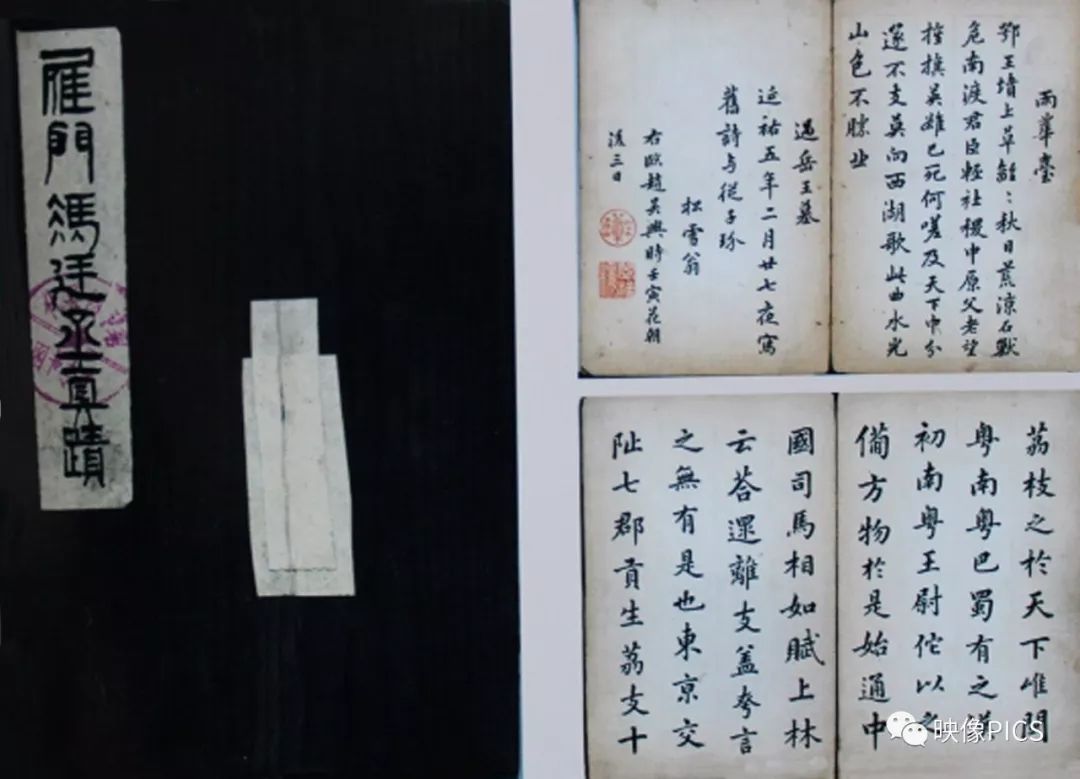 雁門馮廷丞真蹟
雨華臺
鄂王墳上草離〻秋日荒涼石獸
危南渡君臣輕社稷中原父老望
旌旗英雄已死何嗟及天下中分
遂不支莫向西湖歌此曲水光
山色不勝悲
過岳王墓
延祐五年二月廿七夜寫
舊詩与從子
松雪翁
右臨趙吳興時壬寅花朝
後三日
荔枝之於天下唯閩
粤南粤巴蜀有之漢
初南粤王尉佗以之
備方物於是始通中
國司馬相如賦上林
云荅遝離支盖夸言
之無有是也東京交
阯七郡貢生荔支十
映像PICS